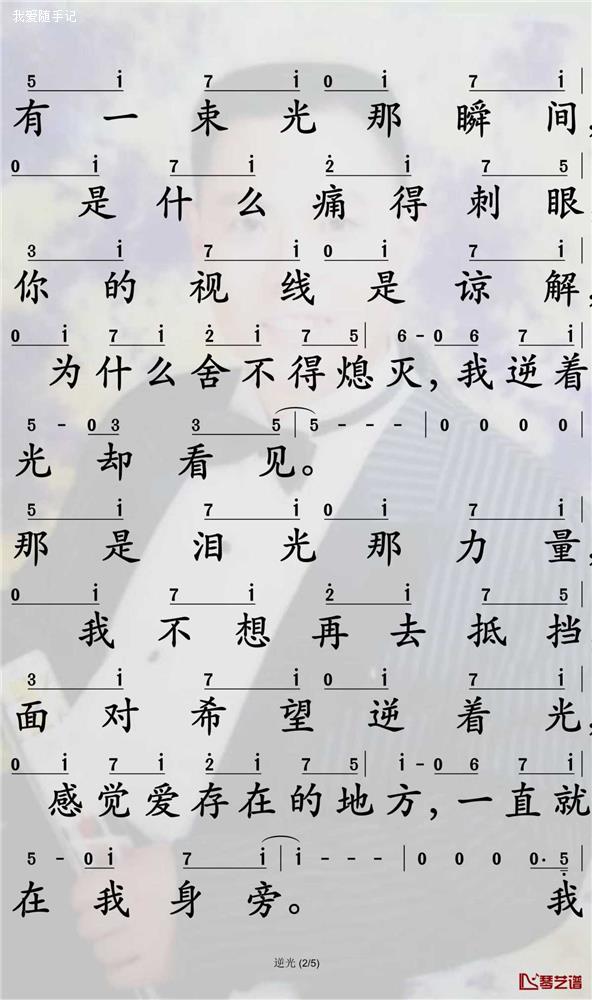 我爱随手记
5 i 7 i 0 i 7 i |
有一束光那瞬间，
0 i 7 i 2̇ i 7 5
是什么痛得刺眼
3 i 7 i 0 i 7 i |
你的视线是谅解，
0 i 7 i 2̇ i 7 5 | 6 - 0 6 7 i |
为什么舍不得熄灭，我逆着
5 - 0 3 3 5 | 5 - - - | 0 0 0 0 |
光却看见。
5 i 7 i 0 i 7 i |
那是泪光那力量，
0 i 7 i 2̇ i 7 5 |
我不想再去抵挡
3 i 7 i 0 i 7 i |
面对希望逆着光，
0 i 7 i 2̇ i 7 5 | i - 0 6 7 i |
感觉爱存在的地方，一直就
5 - 0 i 7 i | i - - - | 0 0 0 0· 5̣ |
在我身旁。 我
逆光 (2/5)
琴艺谱